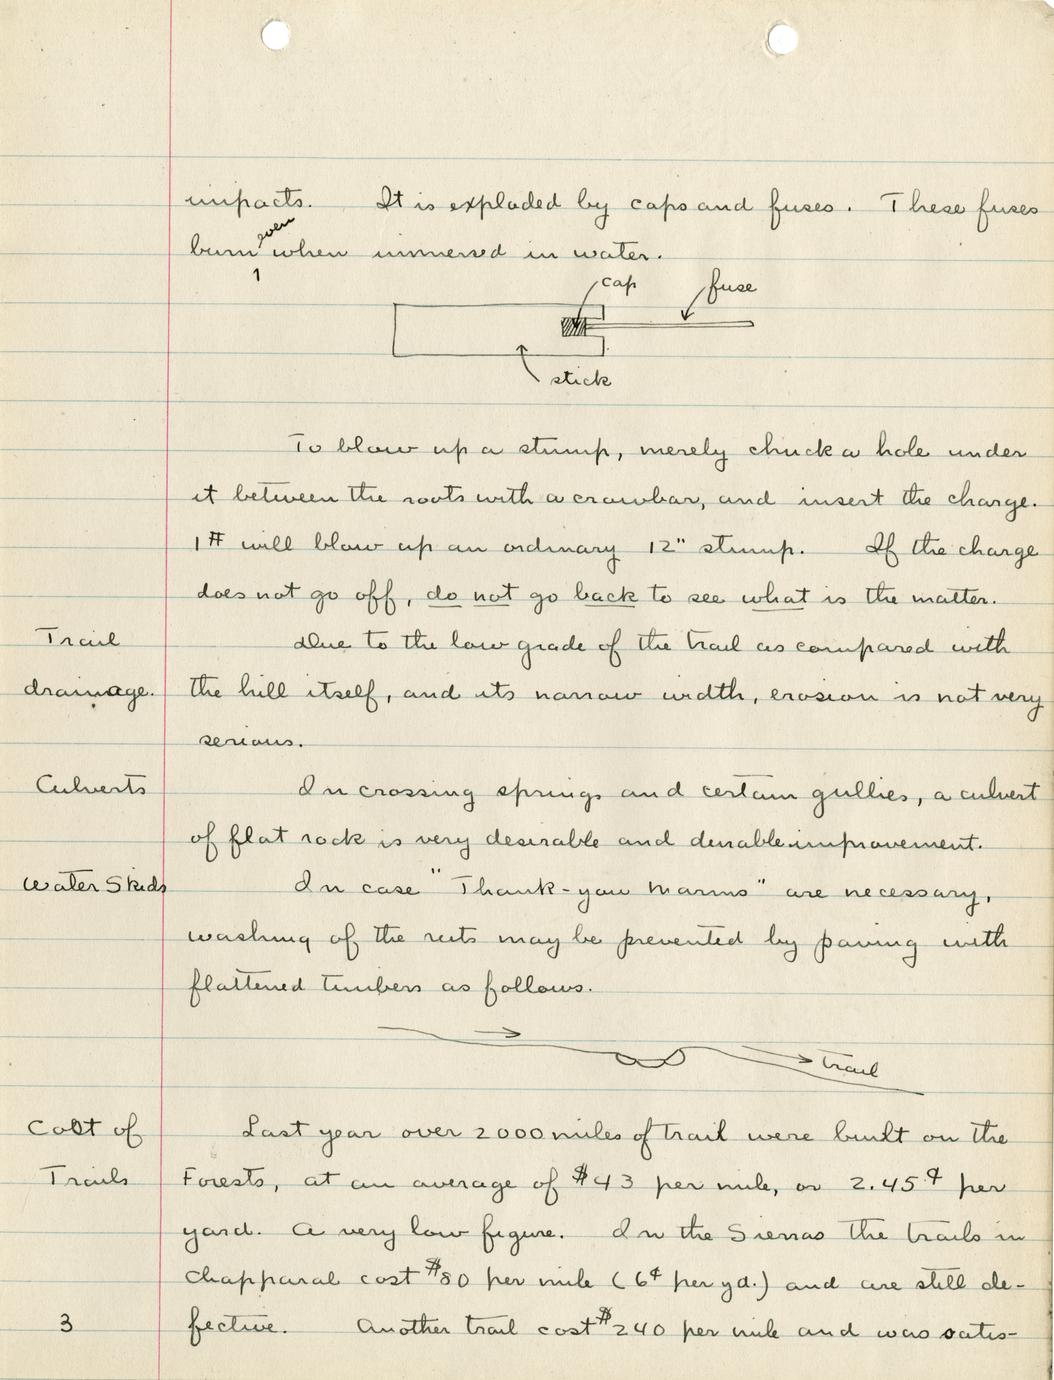 impacts. It is exploded by caps and fuses. These fuses
burn even when immersed in water.
cap fuse
stick
To blow up a stump, merely chuck a hole under
it between the roots with a crowbar, and insert the charge.
1# will blow up an ordinary 12" stump. If the charge
does not go off, do not go back to see what is the matter.
Trail Due to the low grade of the trail as compared with
drainage. the hill itself, and its narrow width, erosion is not very
serious.
Culverts In crossing springs and certain gullies, a culvert
of flat rock is very desirable and durable improvement.
Water Skids In case "Thank-you Marms" are necessary,
washing of the ruts may be prevented by paving with
flattened timbers as follows.
trail
Cost of Last year over 2000 miles of trail were built on the
Trails Forests, at an average of $43 per mile, or 2.45¢ per
yard. A very low figure. In the Sierras the trails in
Chapparal cost $80 per mile (6¢ per yd.) and are still de-
3 fective. Another trail cost $240 per mile and was satis-